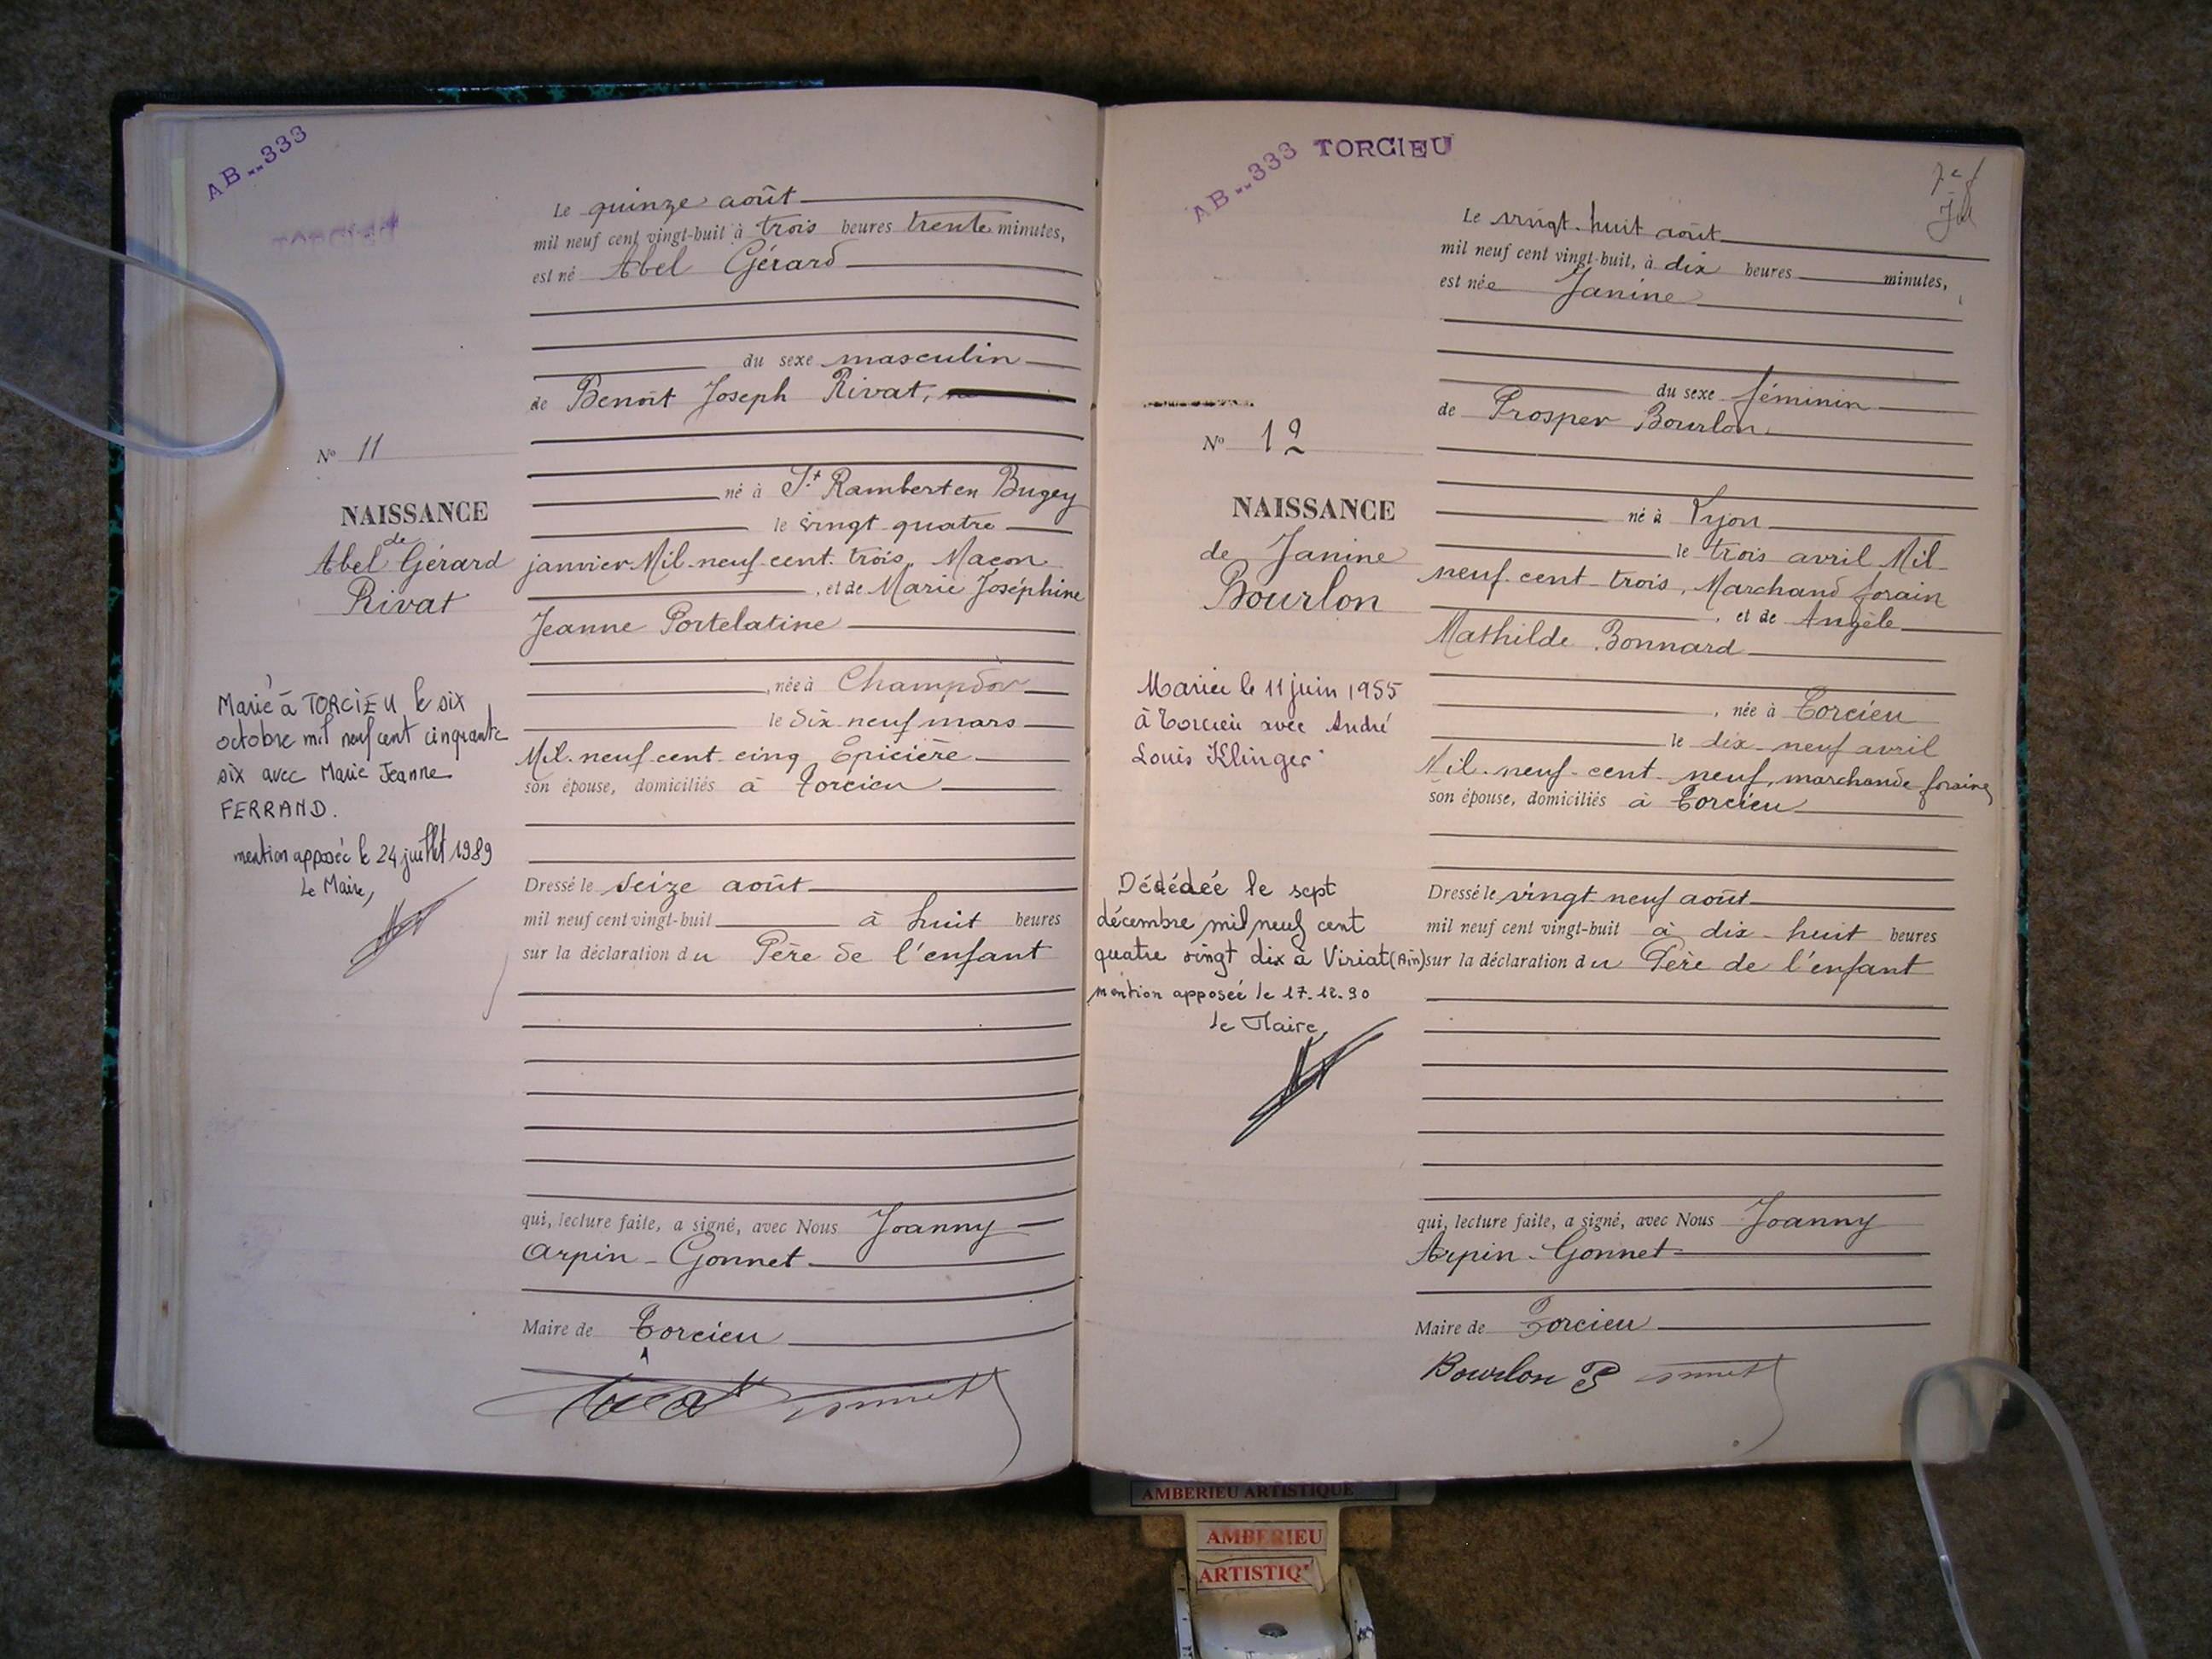 AB..333
TORCIEU
Le quinze août
mil neuf cent vingt-huit à trois heures trente minutes,
est né Abel Gérard
du sexe masculin
de Benoît Joseph Rivat,
né à St Rambert en Bugey
le vingt quatre
janvier Mil neuf cent trois, Maçon
, et de Marie Joséphine
Jeanne Portelatine
, née à Champdor
le dix neuf mars
Mil neuf cent cinq Epicière
son épouse, domiciliés à Torcieu
Dressé le seize août
mil neuf cent vingt-huit à huit heures
sur la déclaration du Père de l'enfant
qui, lecture faite, a signé, avec Nous Joanny
Arpin-Gonnet
Maire de Torcieu
N° 11
NAISSANCE
de
Abel Gérard
Rivat
Marié à TORCIEU le six
octobre mil neuf cent cinquante
six avec Marie Jeanne
FERRAND.
mention apposée le 24 juillet 1989
Le Maire,
AB..333 TORCIEU
Le vingt-huit août
mil neuf cent vingt-huit, à dix heures minutes,
est née Janine
du sexe féminin
de Prosper Bourlon
né à Lyon
le trois avril Mil
neuf cent trois, Marchand forain
, et de Angèle
Mathilde Bonnard
, née à Torcieu
le dix neuf avril
Mil neuf cent neuf, marchande foraine
son épouse, domiciliés à Torcieu
Dressé le vingt neuf août
mil neuf cent vingt-huit à dix-huit heures
sur la déclaration du Père de l'enfant
qui, lecture faite, a signé, avec Nous Joanny
Arpin-Gonnet
Maire de Torcieu
Bourlon P
N° 12
NAISSANCE
de Janine
Bourlon
Mariée le 11 juin 1955
à Torcieu avec André
Louis Klinger
Dédédée le sept
décembre mil neuf cent
quatre vingt dix à Viriat (Ain)
mention apposée le 17.12.90
Le Maire,
AMBERIEU ARTISTIQUE
AMBERIEU
ARTISTIQ